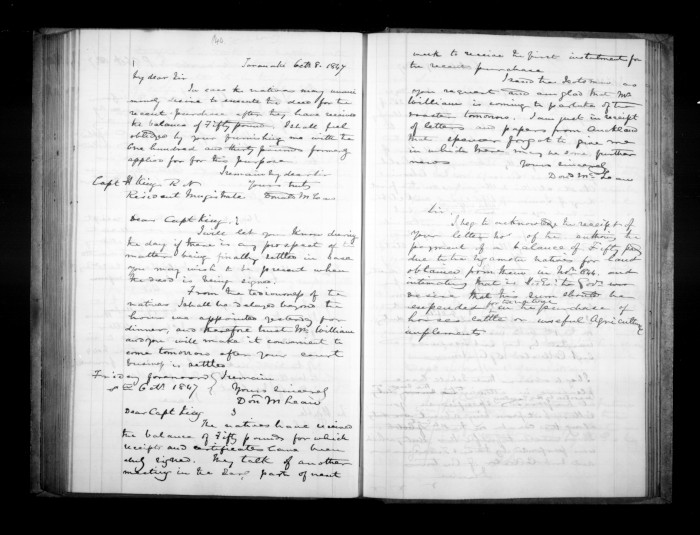 140
Taranaki Octr 8. 1847
My dear Sir
In case the natives may unani
mously desire to execute the deed for the
recent purchase after they have received
the balance of Fifty pounds, I shall feel
obliged by your furnishing me with the
One hundred and thirty pounds formerly
applied for for this purpose
I remain my dear Sir
Capt H King R N Yours truly
Resident Magistrate Donald McLean
Dear Capt King.
I will let you know during
the day if there is any prospect of the
matter being finally settled in case
you may wish to be present when
the deed is being signed.
From the tediousness of the
natives I shall be delayed beyond the
hour we appointed yesterday for
dinner, and therefore trust Mr William
and you will make it convenient to
come tomorrow after your court
business is settled
Friday forenoon I remain
8th Octr 1847 Yours sincerely
Don McLean
Dear Capt King
The natives have received
the balance of Fifty pounds for which
receipts and certificates have been
duly signed. They talk of another
meeting in the early part of next
week to receive the first instalment for
the recent purchase
I send the as
you request and am glad that Mr
William is coming to partake of the
tomorrow. I am just in receipt
of letters and papers from Auckland
Mr Spencer forgot to give me
in which there may be some further
news Yours sincerely
Don McLean
Sir,
I beg to acknowledge the receipt of
your letter No of the authorizing the
payment of a balance of Fifty
due to the natives for land
obtained from them in Novr 1844, and
intimating that H. Ex. the Govr was
desirous that this sum should be
expended in the purchase of
horses cattle or useful Agricultural
implements